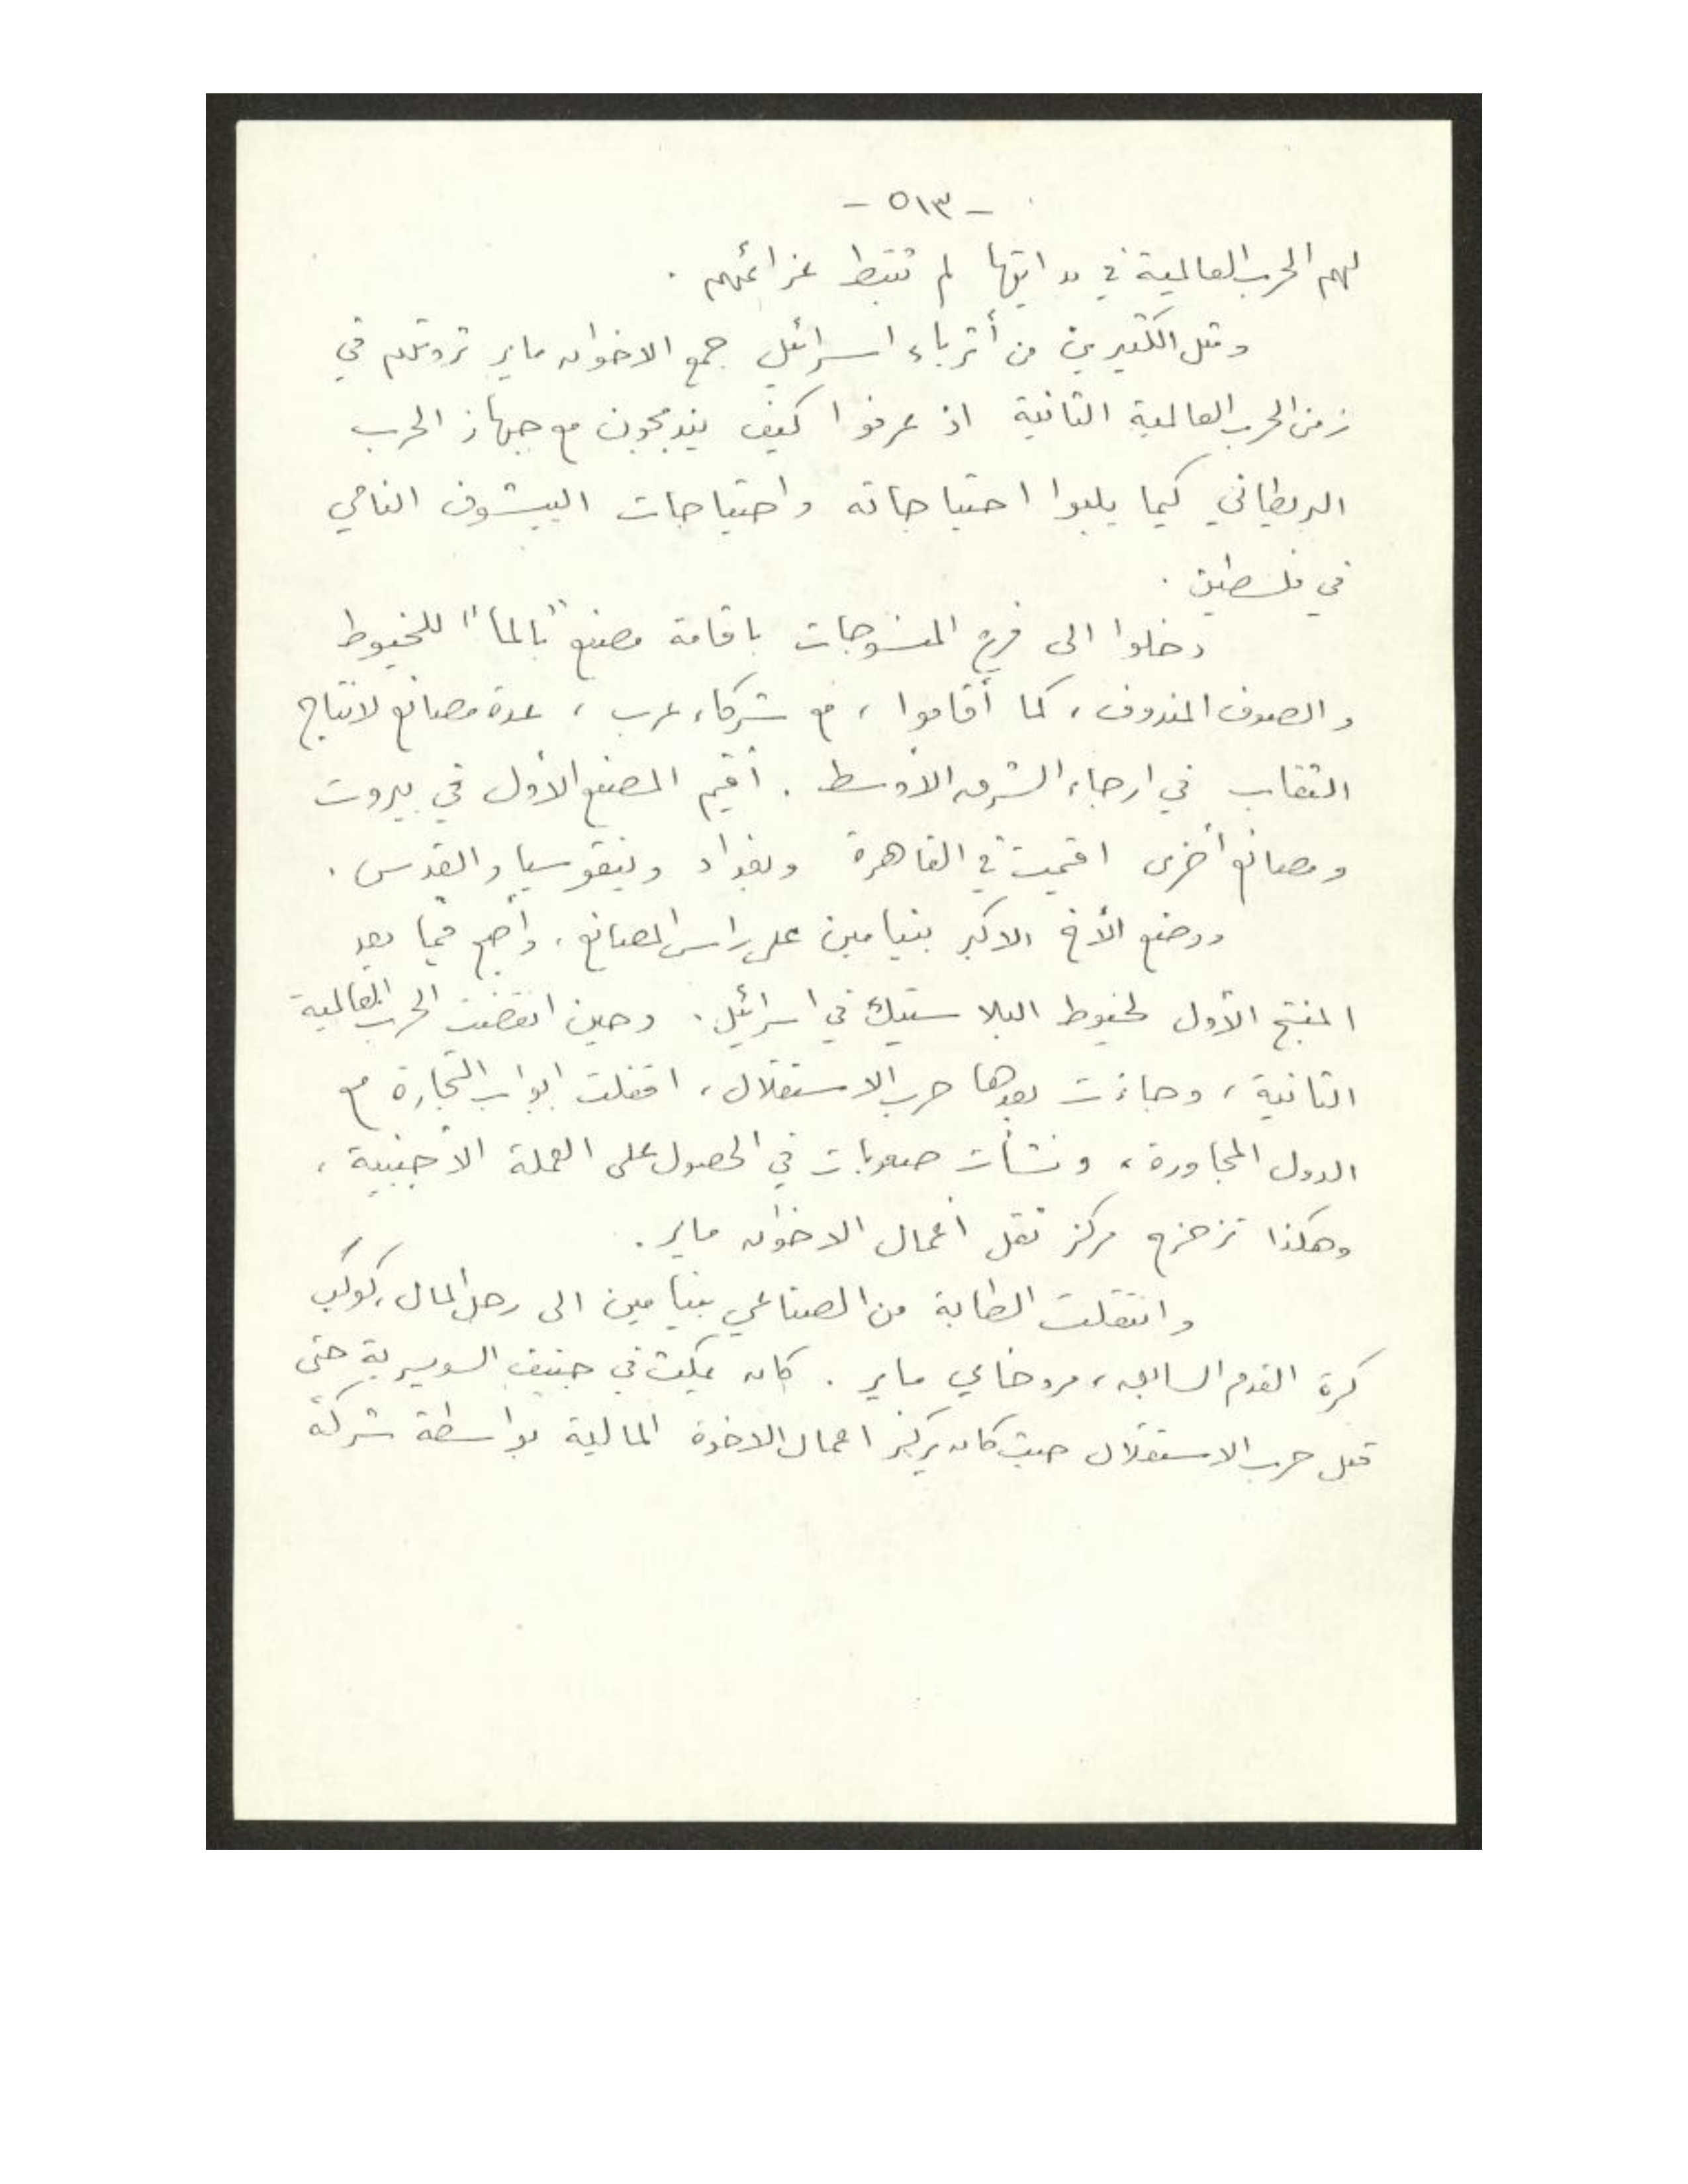 - ٥١٣ -
لهم الحرب العالمية في بدايتها لم تثبط عزائمهم .
ومثل الكثيرين من أثرياء اسرائيل جمع الاخوان ماير ثروتهم في
زمن الحرب العالمية الثانية اذ عرفوا كيف يندمجون مع جهاز الحرب
البريطاني كيما يلبوا احتياجاته واحتياجات الييشوف النامي
في فلسطين .
دخلوا الى فرع المنسوجات باقامة مصنع "بالما" للخيوط
والصوف المندوف ، كما أقاموا ، مع شركاء عرب ، عدة مصانع لانتاج
الثقاب في ارجاء الشرق الأوسط . أقيم المصنع الأول في بيروت
ومصانع أخرى اقيمت في القاهرة وبغداد ونيقوسيا والقدس .
ووضع الأخ الاكبر بنيامين على راس المصانع ، وأصبح فيما بعد
المنتج الأول لخيوط البلاستيك في اسرائيل . وحين انقضت الحرب العالمية
الثانية ، وجاءت بعدها حرب الاستقلال ، اقفلت ابواب التجارة مع
الدول المجاورة ، ونشأت صعوبات في الحصول على العملة الأجنبية ،
وهكذا تزحزح مركز ثقل أعمال الاخوان ماير .
وانتقلت الطابة من الصناعي بنيامين الى رجل المال ، كوكب
كرة القدم السابق ، مردخاي ماير . كان يمكث في جنيف السويسرية حتى
قبل حرب الاستقلال حيث كان يركز اعمال الاخوة المالية بواسطة شركة